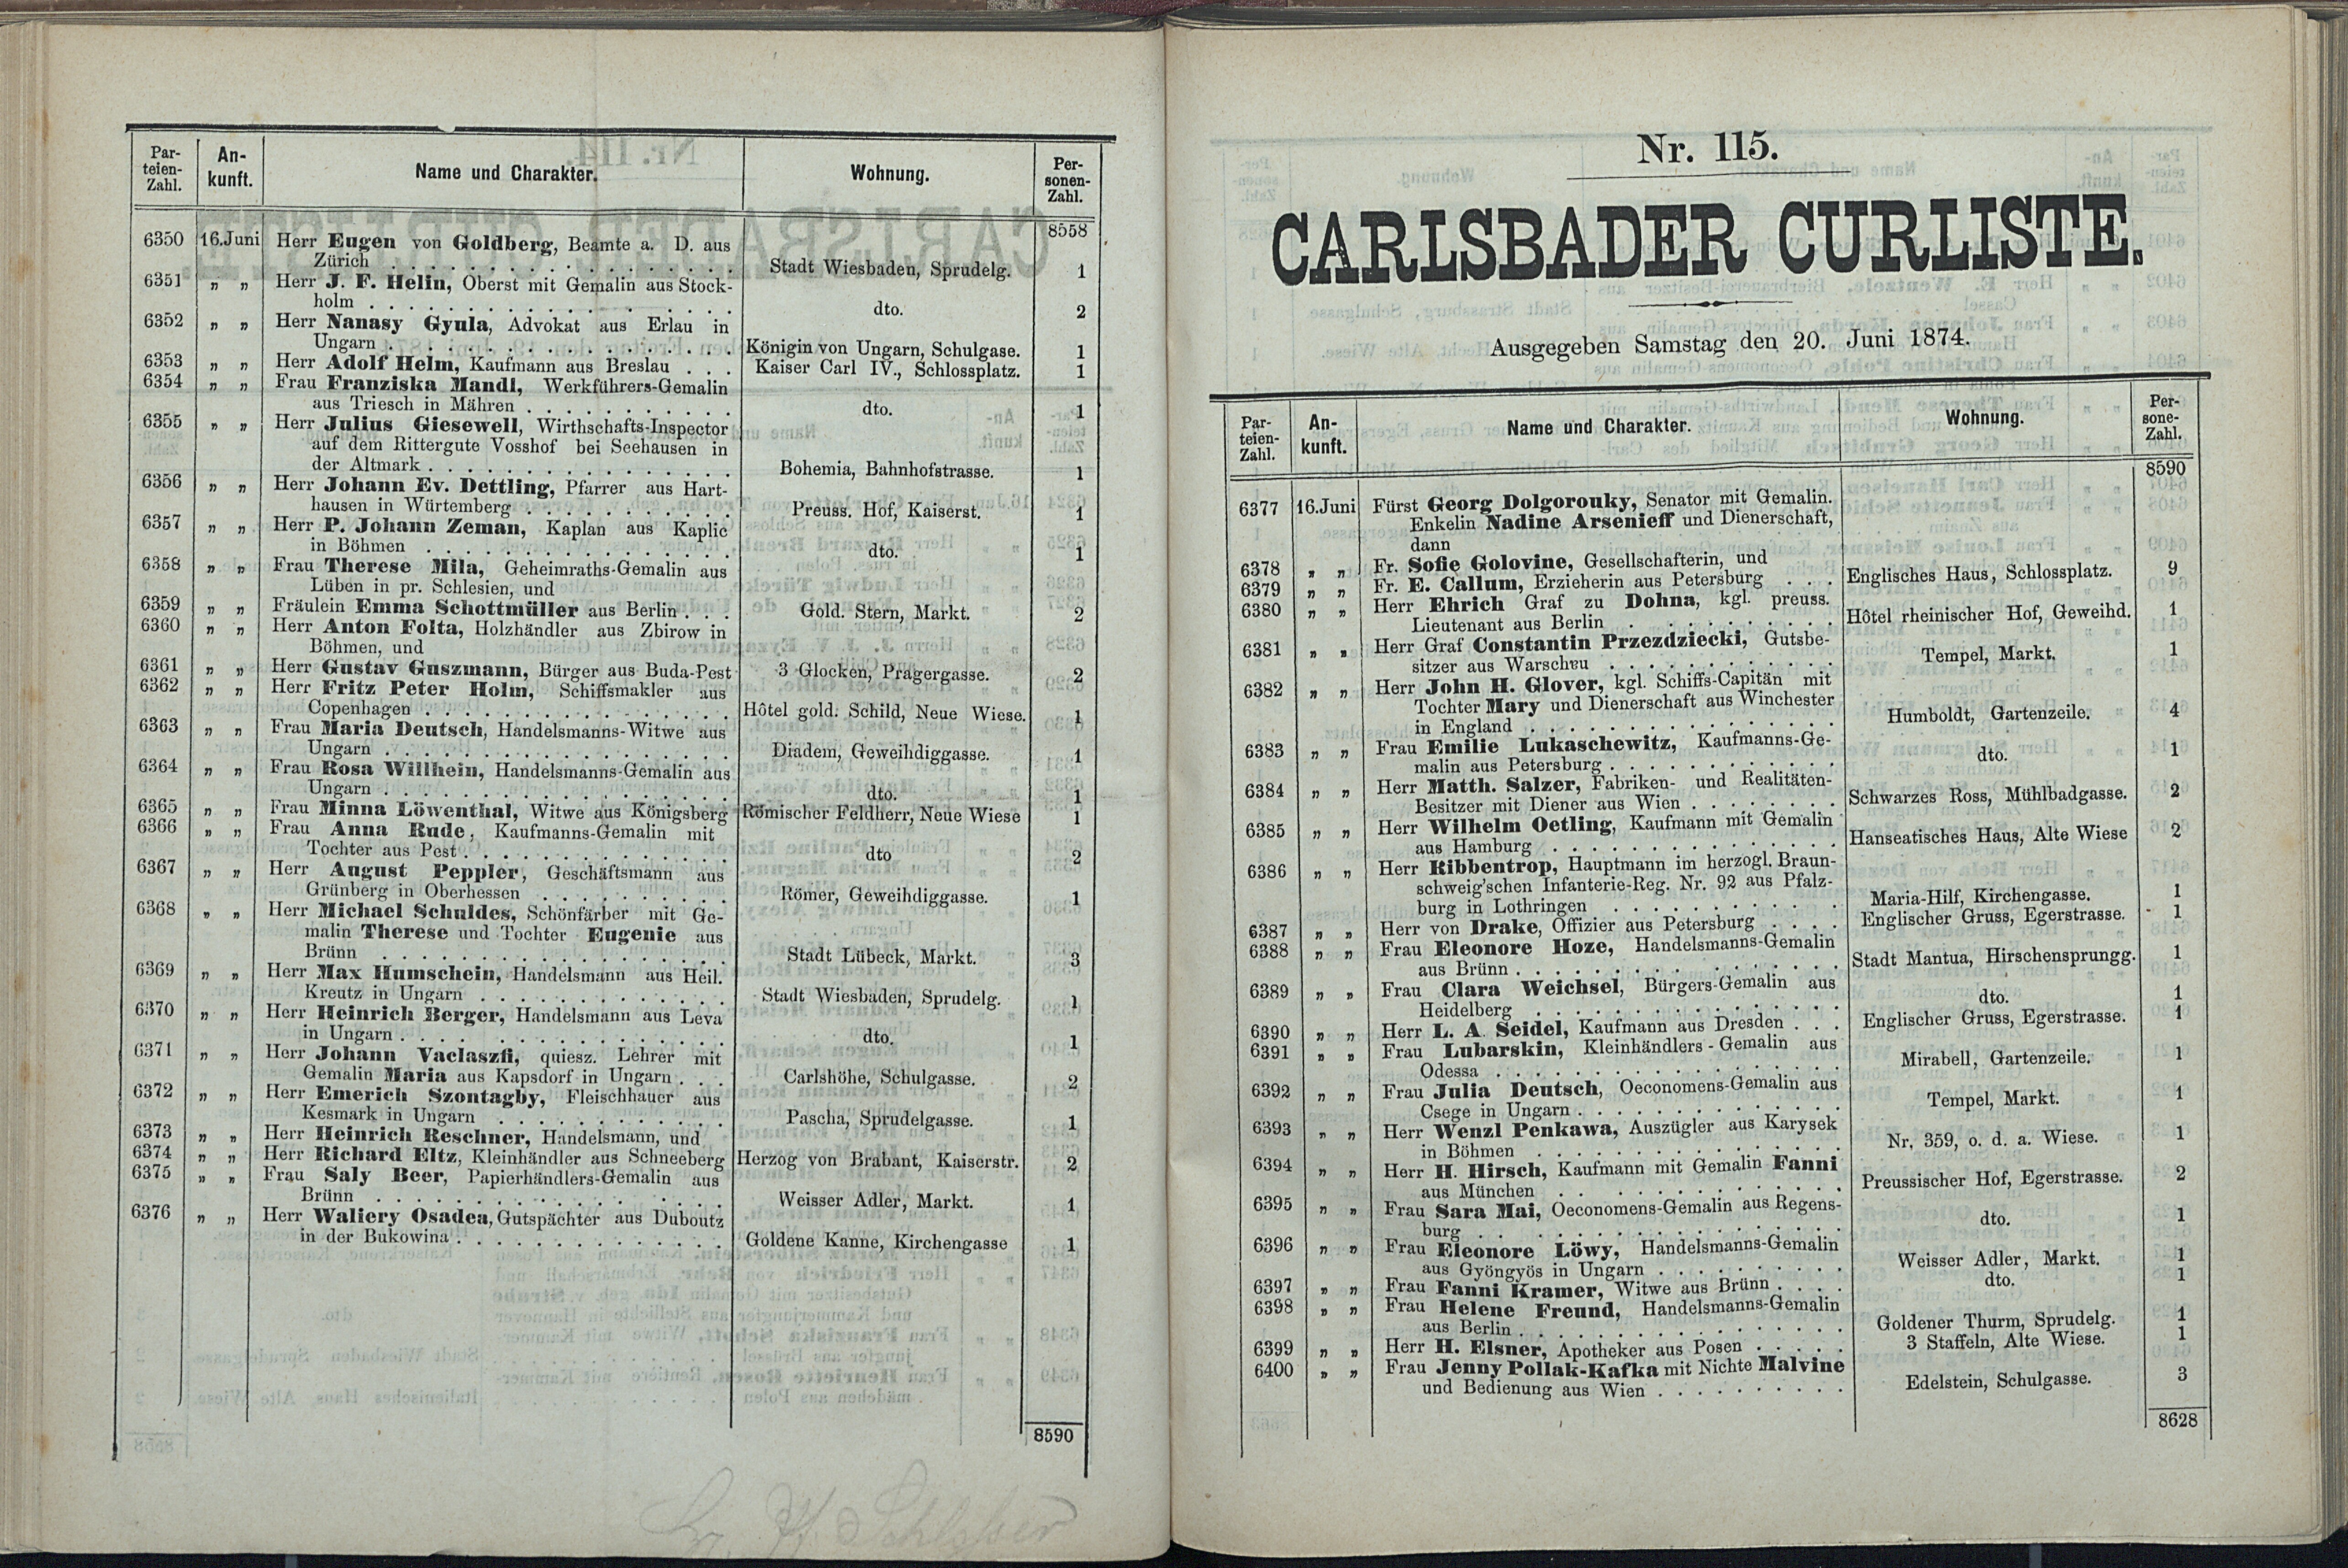 Par-
teien-
Zahl.
An-
kunft.
Name und Charakter.
Wohnung.
Per-
sonen-
Zahl.
8558
6350 16.Juni Herr Eugen von Goldberg, Beamte a. D. aus
Zürich . . . Stadt Wiesbaden, Sprudelg. 1
6351 „ „ Herr J. F. Helin, Oberst mit Gemalin aus Stock-
holm . . . dto. 2
6352 „ „ Herr Nanasy Gyula, Advokat aus Erlau in
Ungarn . . . Königin von Ungarn, Schulgase. 1
6353 „ „ Herr Adolf Helm, Kaufmann aus Breslau . . . Kaiser Carl IV., Schlossplatz. 1
6354 „ „ Frau Franziska Mandl, Werkführers-Gemalin
aus Triesch in Mähren . . . dto. 1
6355 „ „ Herr Julius Giesewell, Wirthschafts-Inspector
auf dem Rittergute Vosshof bei Seehausen in
der Altmark . . . Bohemia, Bahnhofstrasse. 1
6356 „ „ Herr Johann Ev. Dettling, Pfarrer aus Hart-
hausen in Würtemberg . . . Preuss. Hof, Kaiserst. 1
6357 „ „ Herr P. Johann Zeman, Kaplan aus Kaplic
in Böhmen . . . dto. 1
6358 „ „ Frau Therese Mila, Geheimraths-Gemalin aus
Lüben in pr. Schlesien, und
6359 „ „ Fräulein Emma Schottmüller aus Berlin . . . Gold. Stern, Markt. 2
6360 „ „ Herr Anton Folta, Holzhändler aus Zbirow in
Böhmen, und
6361 „ „ Herr Gustav Guszmann, Bürger aus Buda-Pest 3 Glocken, Pragergasse. 2
6362 „ „ Herr Fritz Peter Holm, Schiffsmakler aus
Copenhagen . . . Hôtel gold. Schild, Neue Wiese. 1
6363 „ „ Frau Maria Deutsch, Handelsmanns-Witwe aus
Ungarn . . . Diadem, Geweihdiggasse. 1
6364 „ „ Frau Rosa Willhein, Handelsmanns-Gemalin aus
Ungarn . . . dto. 1
6365 „ „ Frau Minna Löwenthal, Witwe aus Königsberg Römischer Feldherr, Neue Wiese 1
6366 „ „ Frau Anna Rude, Kaufmanns-Gemalin mit
Tochter aus Pest . . . dto 2
6367 „ „ Herr August Peppler, Geschäftsmann aus
Grünberg in Oberhessen . . . Römer, Geweihdiggasse. 1
6368 „ „ Herr Michael Schuldes, Schönfärber mit Ge-
malin Therese und Tochter Eugenie aus
Brünn . . . Stadt Lübeck, Markt. 3
6369 „ „ Herr Max Humschein, Handelsmann aus Heil.
Kreutz in Ungarn . . . Stadt Wiesbaden, Sprudelg. 1
6370 „ „ Herr Heinrich Berger, Handelsmann aus Leva
in Ungarn . . . dto. 1
6371 „ „ Herr Johann Vaclaszfi, quiesz. Lehrer mit
Gemalin Maria aus Kapsdorf in Ungarn . . . Carlshöhe, Schulgasse. 2
6372 „ „ Herr Emerich Szontagby, Fleischhauer aus
Kesmark in Ungarn . . . Pascha, Sprudelgasse. 1
6373 „ „ Herr Heinrich Reschner, Handelsmann, und
6374 „ „ Herr Richard Eltz, Kleinhändler aus Schneeberg Herzog von Brabant, Kaiserstr. 2
6375 „ „ Frau Saly Beer, Papierhändlers-Gemalin aus
Brünn . . . Weisser Adler, Markt. 1
6376 „ „ Herr Waliery Osadea, Gutspächter aus Duboutz
in der Bukowina . . . Goldene Kanne, Kirchengasse 1
8590
Nr. 115.
CARLSBADER CURLISTE.
Ausgegeben Samstag den 20. Juni 1874.
Par-
teien-
Zahl.
An-
kunft.
Name und Charakter.
Wohnung.
Per-
sone-
Zahl.
8590
6377 16.Juni Fürst Georg Dolgorouky, Senator mit Gemalin.
Enkelin Nadine Arsenieff und Dienerschaft,
dann
6378 „ „ Fr. Sofie Golovine, Gesellschafterin, und
6379 „ „ Fr. E. Callum, Erzieherin aus Petersburg . . . Englisches Haus, Schlossplatz. 9
6380 „ „ Herr Ehrich Graf zu Dohna, kgl. preuss.
Lieutenant aus Berlin . . . Hôtel rheinischer Hof, Geweihd. 1
6381 „ „ Herr Graf Constantin Przezdziecki, Gutsbe-
sitzer aus Warschau . . . Tempel, Markt. 1
6382 „ „ Herr John H. Glover, kgl. Schiffs-Capitän mit
Tochter Mary und Dienerschaft aus Winchester
in England . . . Humboldt, Gartenzeile. 4
6383 „ „ Frau Emilie Lukaschewitz, Kaufmanns-Ge-
malin aus Petersburg . . . dto. 1
6384 „ „ Herr Matth. Salzer, Fabriken- und Realitäten-
Besitzer mit Diener aus Wien . . . Schwarzes Ross, Mühlbadgasse. 2
6385 „ „ Herr Wilhelm Oetling, Kaufmann mit Gemalin
aus Hamburg . . . Hanseatisches Haus, Alte Wiese 2
6386 „ „ Herr Ribbentrop, Hauptmann im herzogl. Braun-
schweig'schen Infanterie-Reg. Nr. 92 aus Pfalz-
burg in Lothringen . . . Maria-Hilf, Kirchengasse. 1
6387 „ „ Herr von Drake, Offizier aus Petersburg . . . Englischer Gruss, Egerstrasse. 1
6388 „ „ Frau Eleonore Hoze, Handelsmanns-Gemalin
aus Brünn . . . Stadt Mantua, Hirschensprungg. 1
6389 „ „ Frau Clara Weichsel, Bürgers-Gemalin aus
Heidelberg . . . dto. 1
6390 „ „ Herr L. A. Seidel, Kaufmann aus Dresden . . . Englischer Gruss, Egerstrasse. 1
6391 „ „ Frau Lubarskin, Kleinhändlers-Gemalin aus
Odessa . . . Mirabell, Gartenzeile. 1
6392 „ „ Frau Julia Deutsch, Oeconomens-Gemalin aus
Csege in Ungarn . . . Tempel, Markt. 1
6393 „ „ Herr Wenzl Penkawa, Auszügler aus Karysek
in Böhmen . . . Nr. 359, o. d. a. Wiese. 1
6394 „ „ Herr H. Hirsch, Kaufmann mit Gemalin Fanni
aus München . . . Preussischer Hof, Egerstrasse. 2
6395 „ „ Frau Sara Mai, Oeconomens-Gemalin aus Regens-
burg . . . dto. 1
6396 „ „ Frau Eleonore Löwy, Handelsmanns-Gemalin
aus Gyöngyös in Ungarn . . . Weisser Adler, Markt. 1
6397 „ „ Frau Fanni Kramer, Witwe aus Brünn . . . dto. 1
6398 „ „ Frau Helene Freund, Handelsmanns-Gemalin
aus Berlin . . . Goldener Thurm, Sprudelg. 1
6399 „ „ Herr H. Elsner, Apotheker aus Posen . . . 3 Staffeln, Alte Wiese. 1
6400 „ „ Frau Jenny Pollak-Kafka mit Nichte Malvine
und Bedienung aus Wien . . . Edelstein, Schulgasse. 3
8628